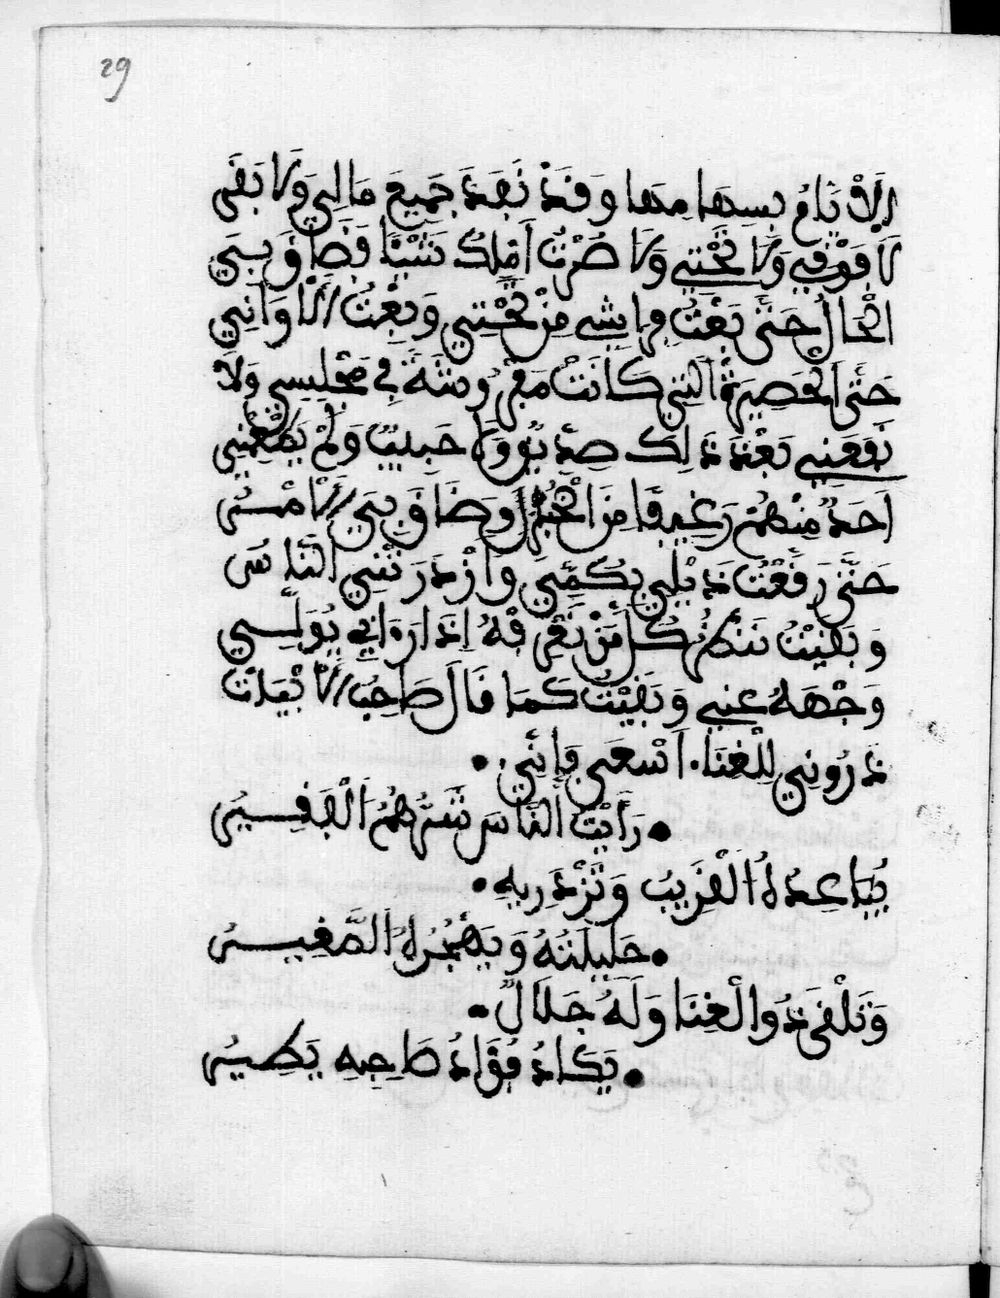 29
الاْيَامُ بسدها مدها وَقدْ نَفِدَ جَمِيعَ مَالِي وَلا بَقَى
لَا فَوْقِي وَلَا تَحْتِي وَلَا صُرْتُ اَمْلِكُ شَيْئًا فَضَاقَ بِيَ
الْحَالُ حَتَّى بَعْتُ فِرَاشِي مِنْ تَحْتِي وَبِعْتُ الْاَوَانِي
حَتَّى الْحَصِيرَةُ الَّتِي كَانَتْ مَفْرُوشَةً فِي مَجْلِسِي وَلَا
نَفَعَنِي بَعْدَ ذَلِكَ صِدِيقٌ وَلَا حَبِيبٌ وَلَمْ يُطْعِمْنِي
اَحَدٌ مِنْهُمْ رَغِيفًا مِنَ الْخُبْزِ وَضَاقَ بِيَ الْاَمْرُ
حَتَّى رَفَعْتُ ذَيْلِي بِكُمِّي وَازْدَرَتْنِي النَّاسُ
وَبَقَيْتُ نَنْظُرُ كُلَّ مَنْ نَعْرِفْهُ اِذَا رَوَانِي يُوَلِّي
وَجْهَهُ عَنِّي وَبَقَيْتُ كَمَا قَالَ صَاحِبُ الْاَبْيَاتْ
ذَرُونِي لِلْغِنَا اَسْعَى فَإِنِّي •
• رَأَيْتُ النَّاسَ شَرُّهُمُ الْفَقِيرُ
يُبَاعِدُهُ الْقَرِيبُ وَتَزْدَرِيهِ •
• حَلِيلَتُهُ وَيَهْجُرُهُ الصَّغِيرُ
وَتَلْقَى ذُوا الْغِنَا وَلَهُ جَلَالٌ •
• يَكَادُ فُؤَادُ صَاحِبِهِ يَطِيرُ